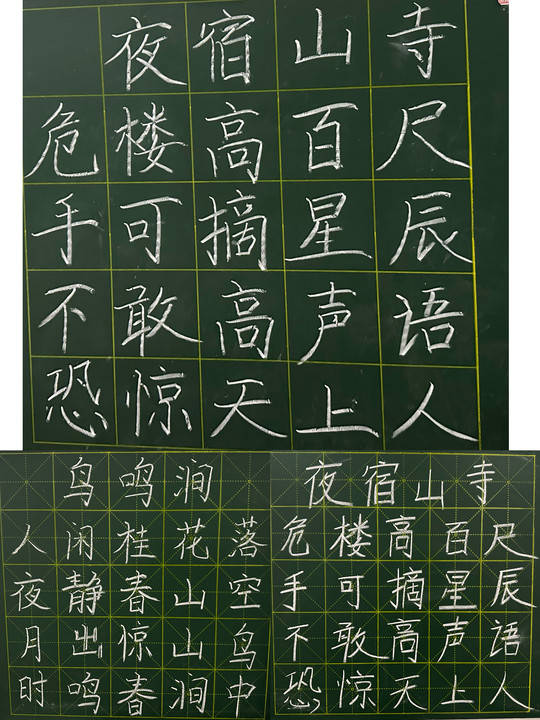 夜宿山寺
危楼高百尺
手可摘星辰
不敢高声语
恐惊天上人
鸟鸣涧
人闲桂花落
夜静春山空
月出惊山鸟
时鸣春涧中
夜宿山寺
危楼高百尺
手可摘星辰
不敢高声语
恐惊天上人